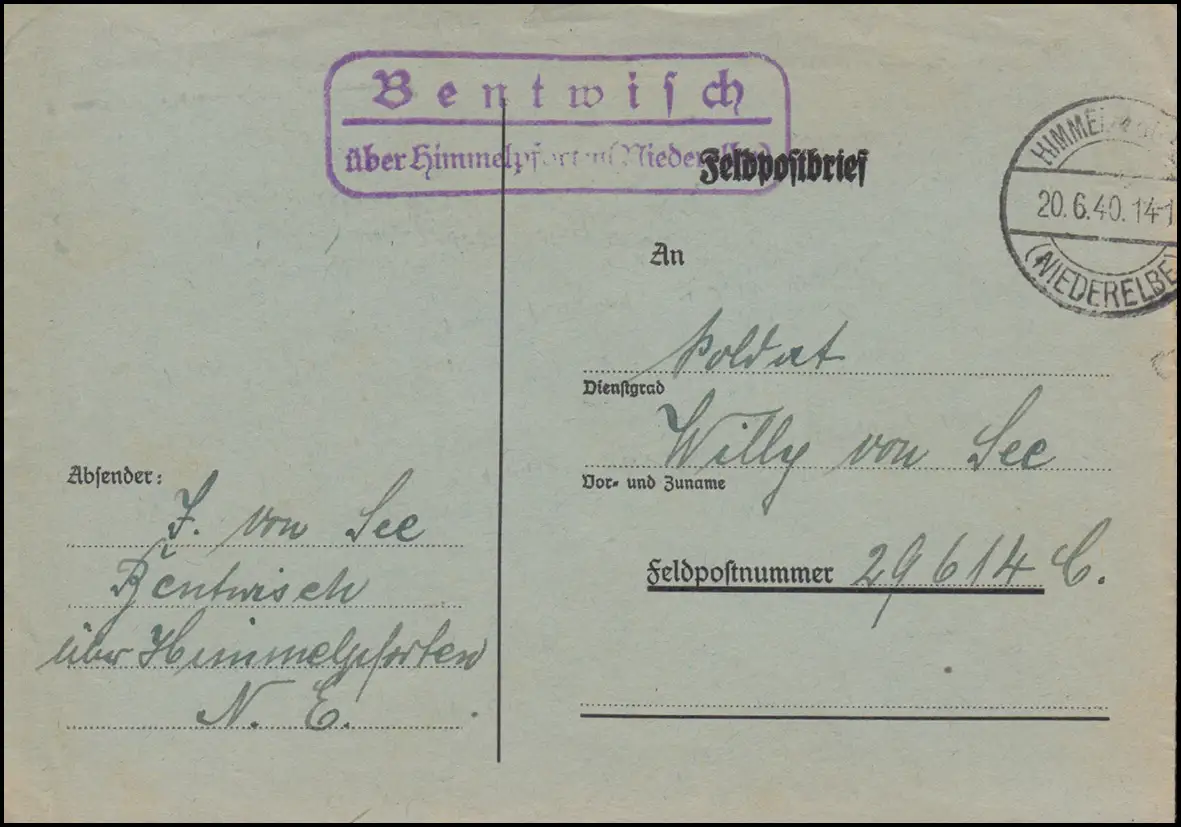 Bentwisch
über Himmelpforten (Niederelbe)
Feldpostbrief
20.6.40.14-1
(NIEDERELBE)
An
Soldat
Dienstgrad
Willy von See
Vor- und Zuname
Feldpostnummer 29614 C.
Absender:
J. von See
Bentwisch
über Himmelpforten
N. E.